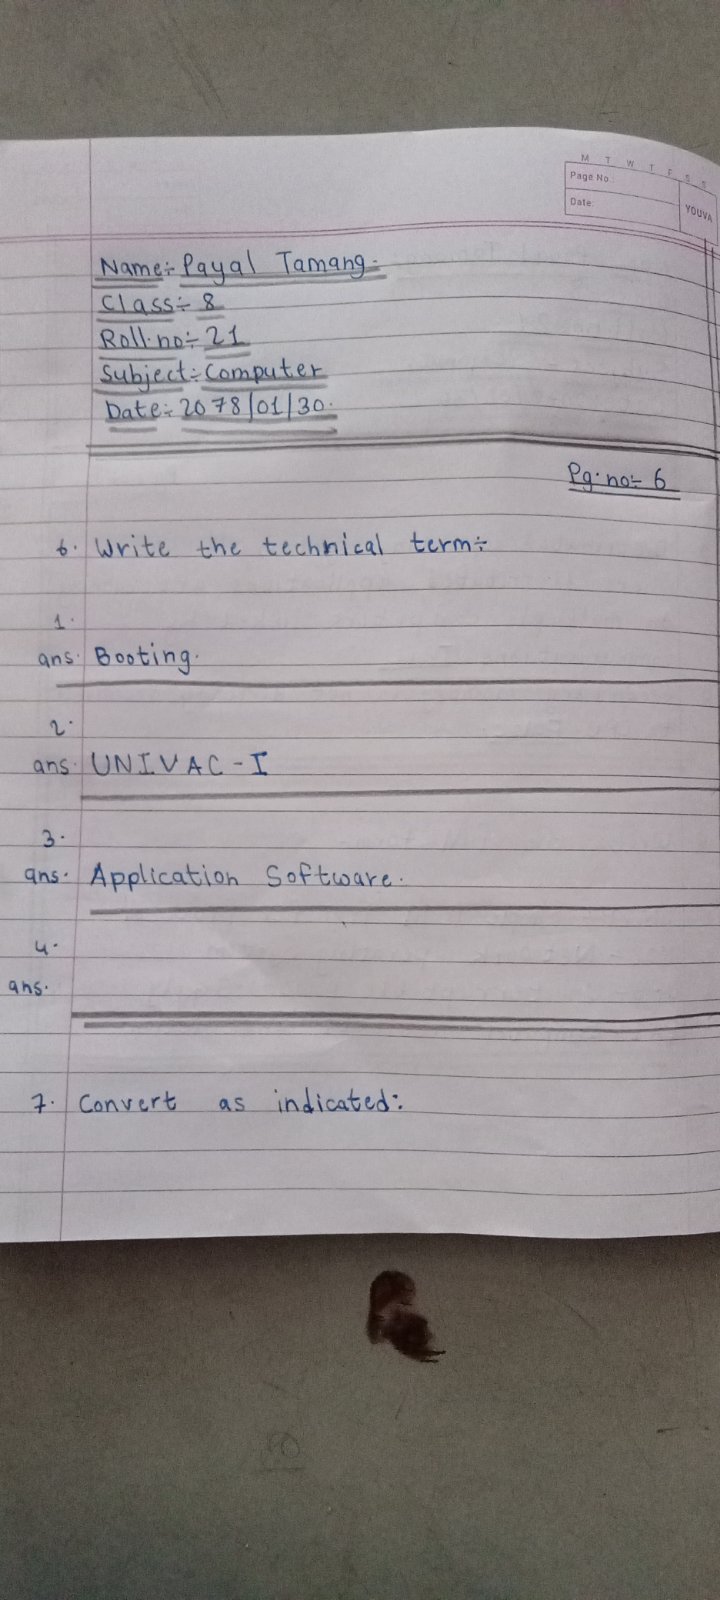 M T W T F S S
Page No.:
Date:
YOUVA
Name:- Payal Tamang.
Class:- 8
Roll.no:- 21
Subject:- Computer
Date:- 2078/01/30.
Pg.no:- 6
6. Write the technical term:-
1.
ans. Booting.
2.
ans. UNIVAC-I
3.
ans. Application Software.
4.
ans.
7. Convert as indicated: